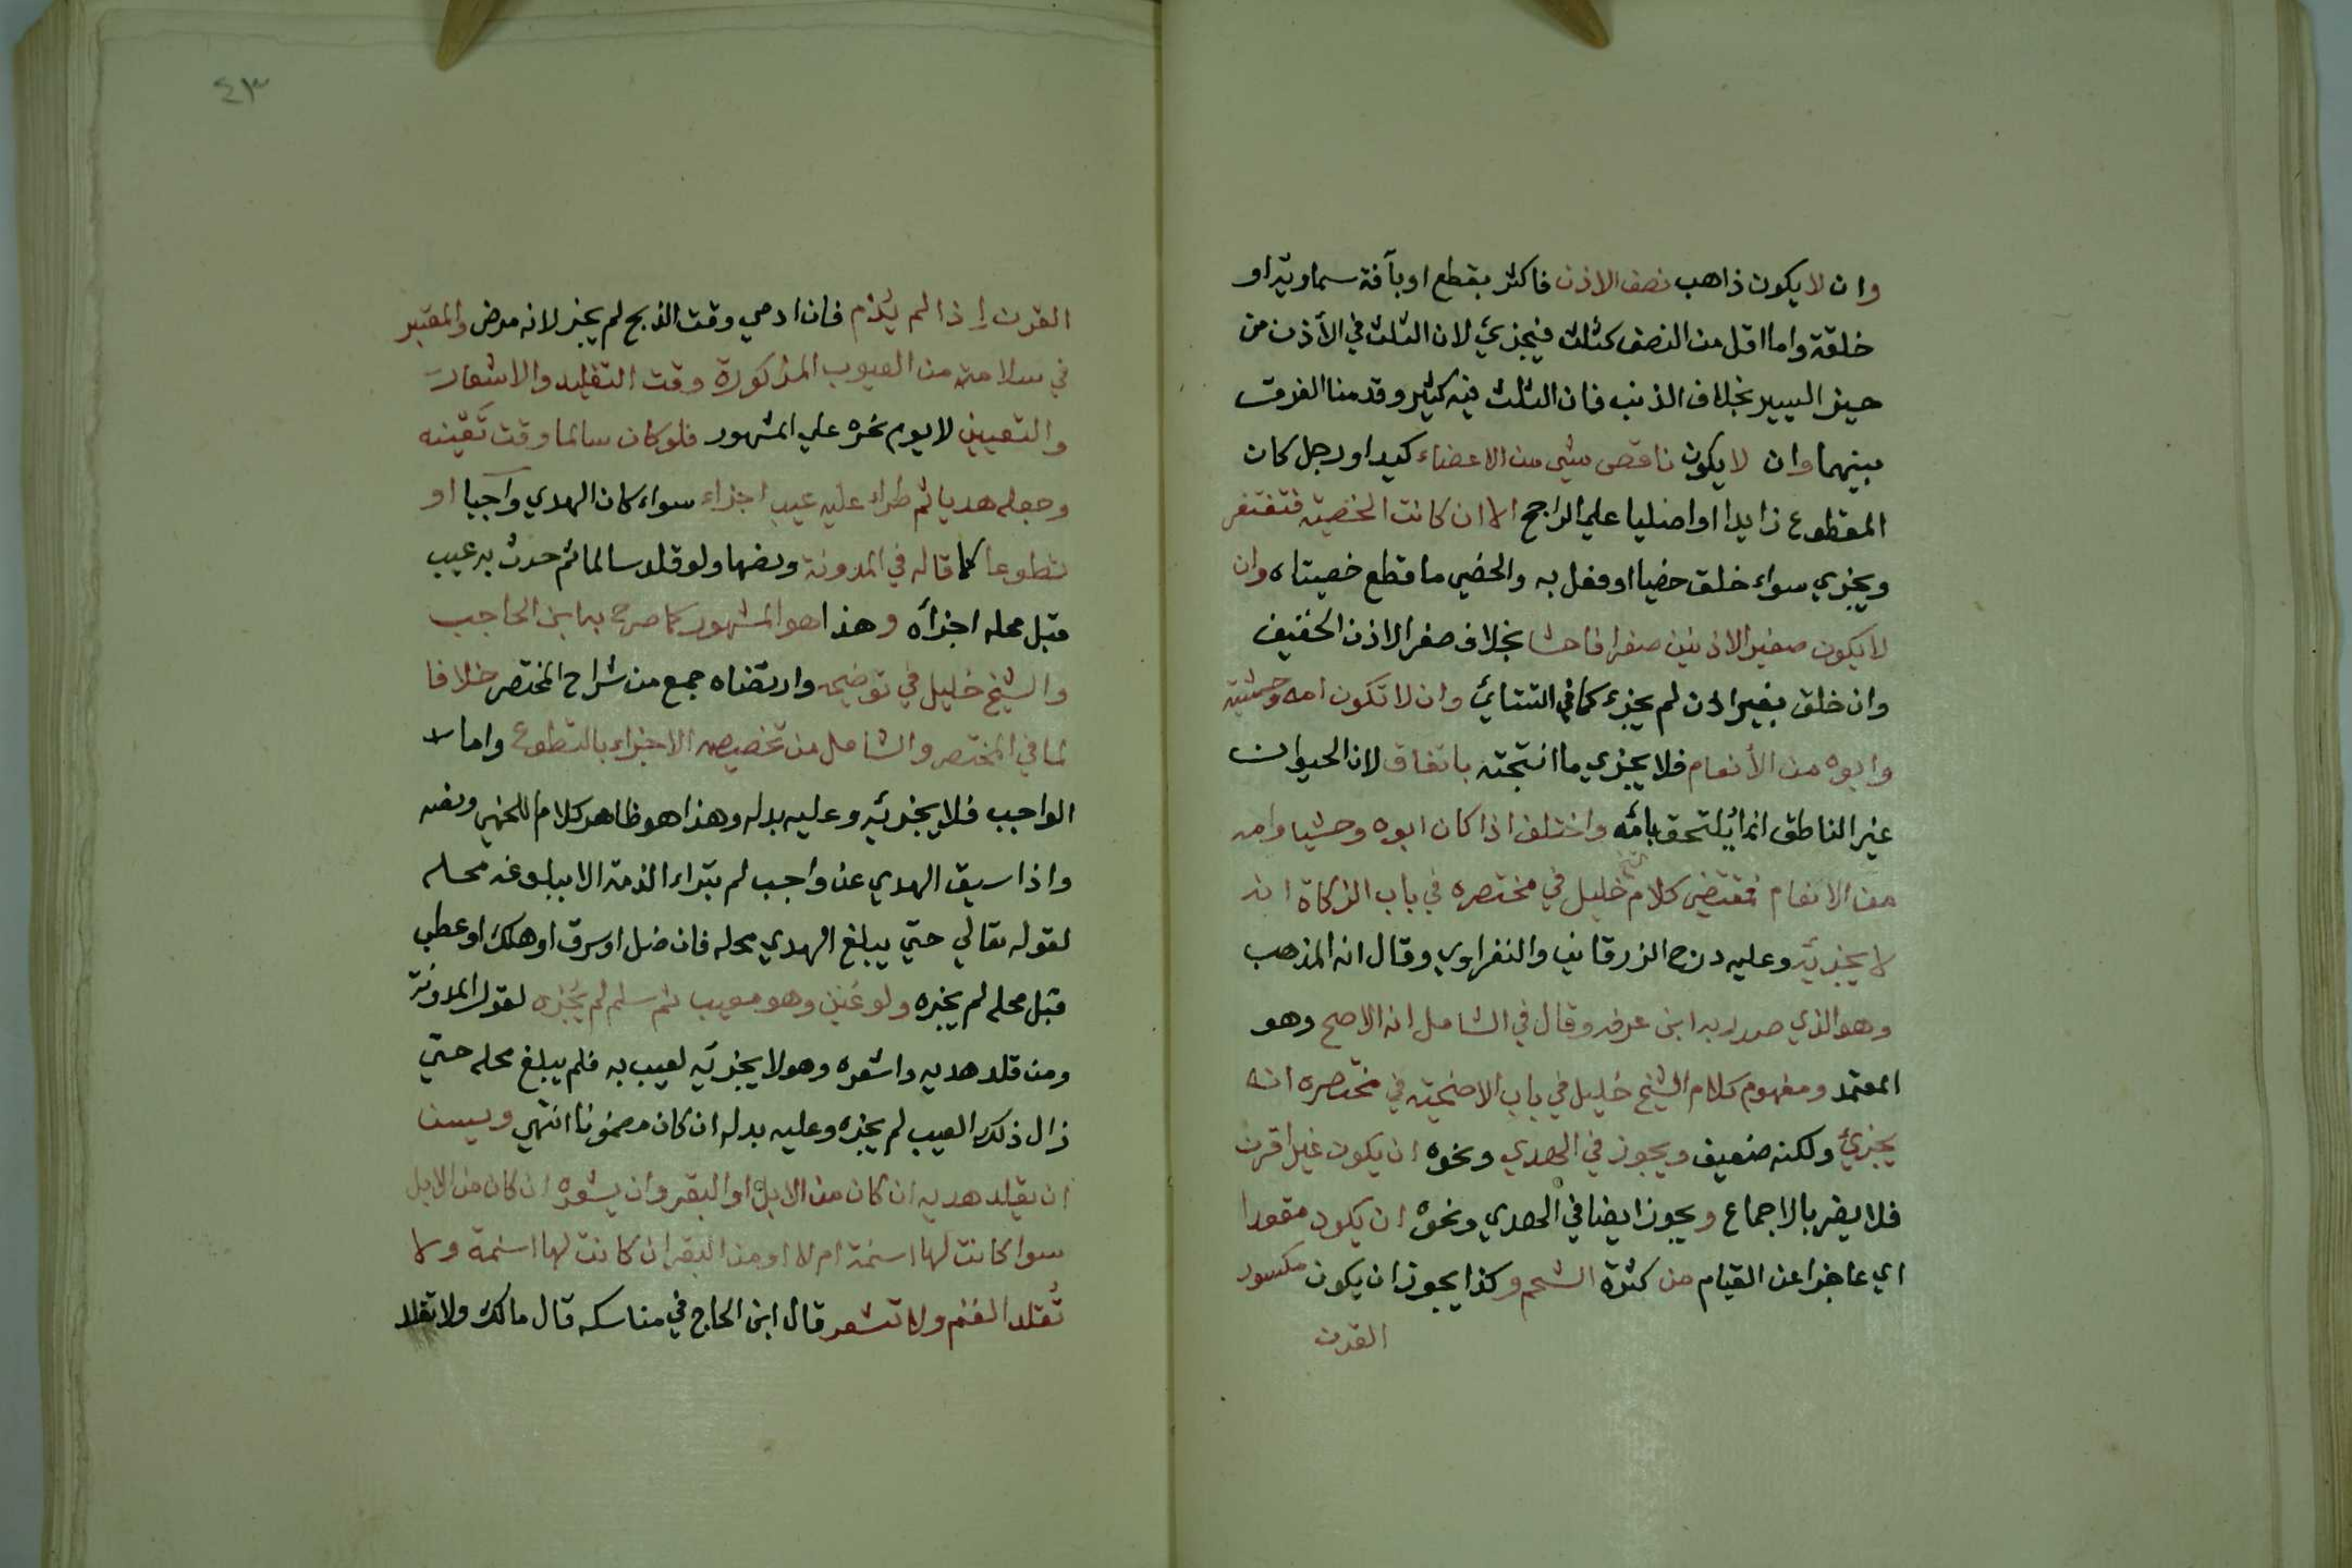 وان لا يكون ذاهب نصف الاذن فاكثر بقطع او بآفة سماوية او
خلقة واما اقل من النصف كثلث فيجزئ لان الثلث في الأذن من
حيز اليسير بخلاف الذنب فان الثلث فيه كثير وقدمنا الفرق
بينهما وان لا يكون ناقص شي من الاعضاء كيد او رجل كان
المقطوع زايدا او اصليا علي الراجح الا ان كانت الخصية فتغتفر
ويجزي سواء خلق خصيا او فعل به والخصي ما قطع خصيتاه وان
لا يكون صغير الاذنين صغرا فاحشا بخلاف صغر الاذن الخفيف
وان خلق بغير اذن لم يجزء كما في التتائ وان لا تكون امه وحشية
وابوه من الأنعام فلا يجزي ما انتجته باتفاق لان الحيوان
غير الناطق انما يُلتحق بامّه واختلف اذا كان ابوه وحشيا وامه
من الانعام فمقتضي كلام الشيخ خليل في مختصره في باب الزكاة انه
لا يجزيه وعليه درج الزرقاني والنفراوي وقال انه المذهب
وهو الذي صدر به ابن عرفه وقال في الشامل انه الاصح وهو
المعتمد ومفهوم كلام الشيخ خليل في باب الاضحية في مختصره انه
يجزئ ولكنه ضعيف ويجوز في الهدي ونحوه ان يكون غير اقرن
فلا يضر بالاجماع ويجوز ايضا في الهدي ونحوه ان يكون مقعدا
اي عاجزا عن القيام من كثرة الشحم وكذا يجوز ان يكون مكسور
القرن
٤٣
القرن اذا لم يُدْم فان ادمي وقت الذبح لم يجز لانه مرض والمعتبر
في سلامته من العيوب المذكورة وقت التقليد والاشعار
والتعيين لا يوم نحره علي المشهور فلو كان سالما وقت تعينه
وجعله هديا ثم طراء عليه عيب اجزاء سواء كان الهدي واجبا او
تطوعا كما قاله في المدونة ونصها ولو قلد سالما ثم حدث به عيب
قبل محله اجزأه وهذا هو المشهور كما صرح به ابن الحاجب
والشيخ خليل في توضيحه وارتضاه جمع من شراح المختصر خلافا
لما في المختصر والشامل من تخصيصه الاجزاء بالتطوع واما
الواجب فلا يجزيه وعليه بدله وهذا هو ظاهر كلام اللخمي ونصه
واذا سيق الهدي عن واجب لم تبراء الذمة الا ببلوغه محله
لقوله تعالي حتي يبلغ الهدي محله فان ضل او سرق او هلك او عطب
قبل محله لم يجزه ولو عُيّن وهو معيب ثم سلم لم يُجْزه لقول المدونة
ومن قلد هديه واشعره وهو لا يجزيه لعيب به فلم يبلغ محله حتي
زال ذلك العيب لم يجزه وعليه بدله ان كان مضمونا انتهي ويسن
ان يقلد هديه ان كان من الابل او البقر وان يشعره ان كان من الابل
سوا كانت لها اسنمة ام لا او من البقر ان كانت لها اسنمة ولا
تُقلد الغنم ولا تشعر قال ابن الحاج في مناسكه قال مالك ولا تقلد